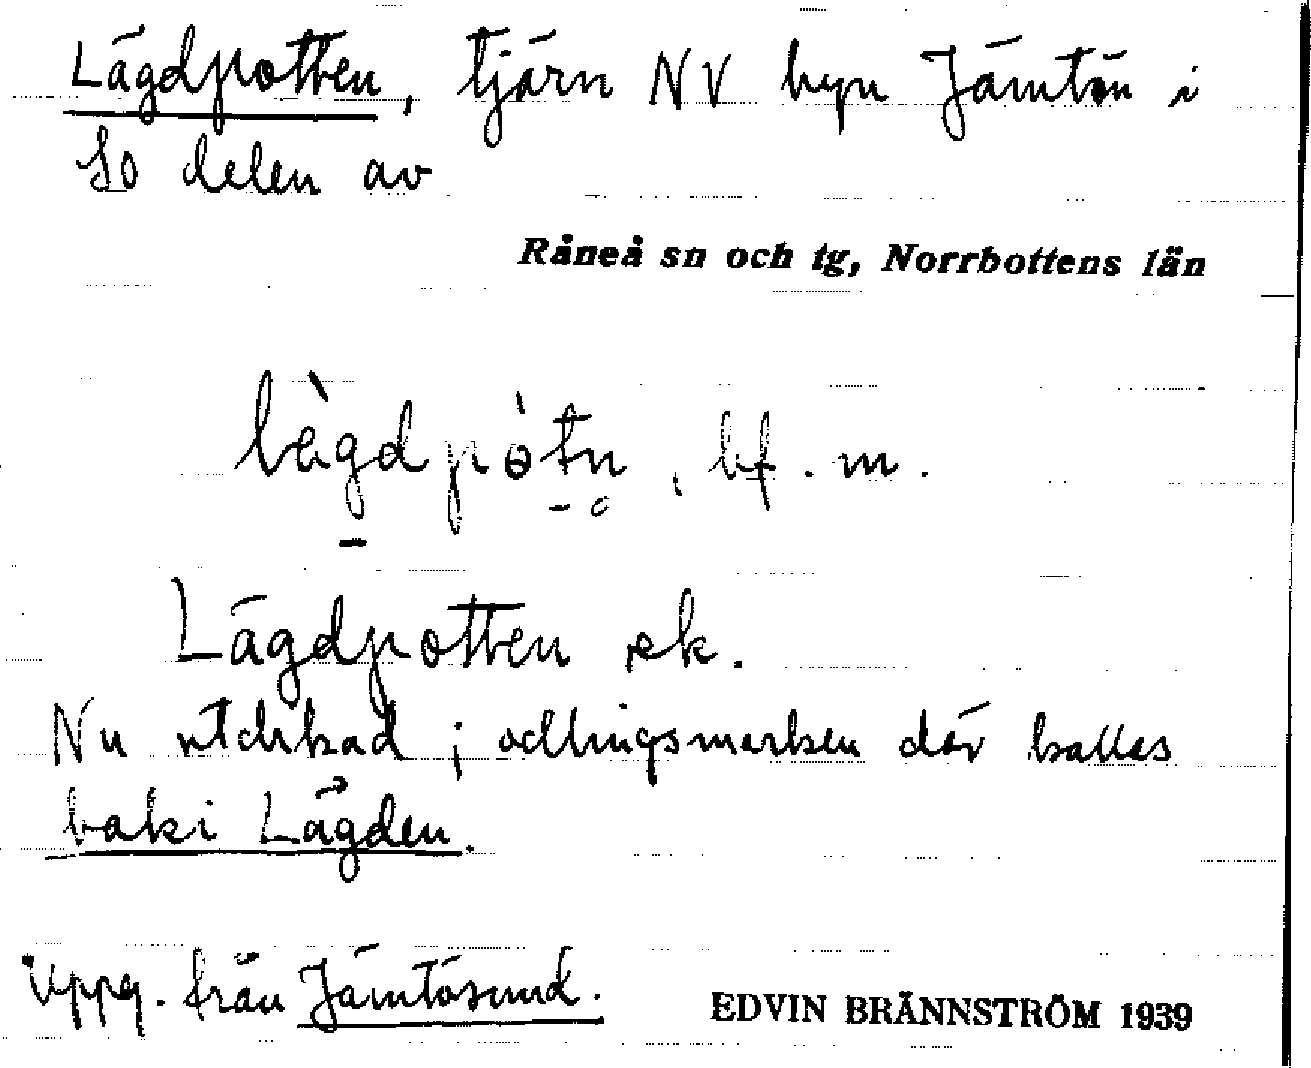 Lägdpotten, tjärn NV byn Jämtön i
SO delen av
Råneå sn och tg, Norrbottens län
bf. m.
Lägdpotten ek.
Nu utdikad; odlingsmarken där kallas
baki Lägden.
Uppg. från Jämtösund.
EDVIN BRÄNNSTRÖM 1939